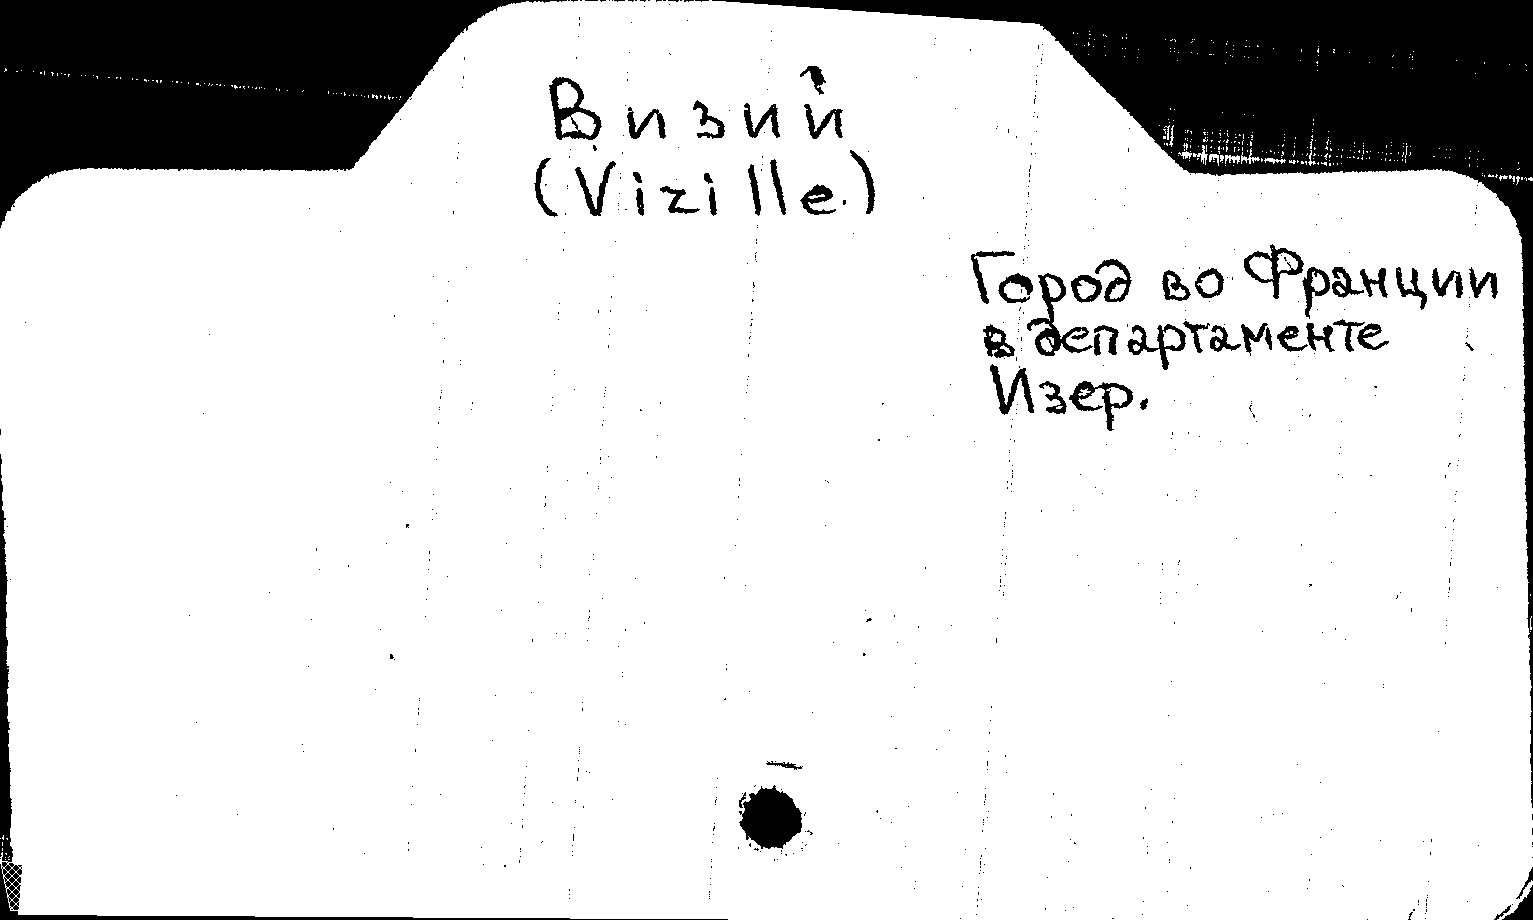 Визий
(Vizille)
Город во Франции
в департаменте
Изер.